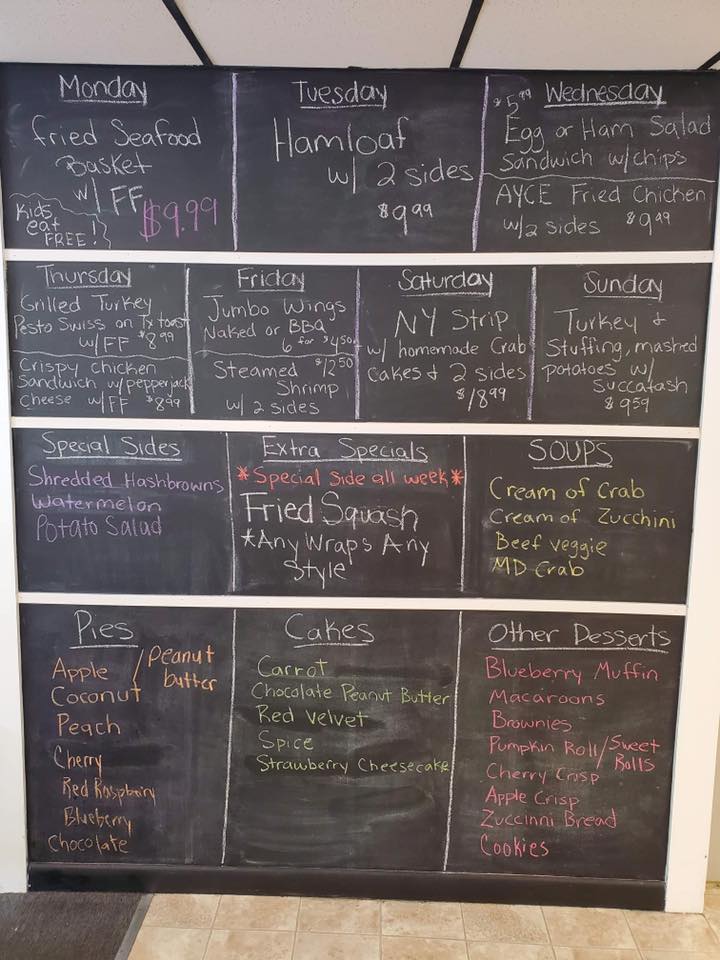 Monday
fried Seafood
Basket
w/ FF
Kids
eat
FREE!
$9.99
Tuesday
Hamloaf
w/ 2 sides
$9.99
$5.99 Wednesday
Egg or Ham Salad
Sandwich w/chips
AYCE Fried Chicken
w/2 sides $9.99
Thursday
Grilled Turkey
Pesto Swiss on Tx toast
w/FF $8.99
Crispy chicken
Sandwich w/pepperjack
cheese w/FF $8.99
Friday
Jumbo Wings
Naked or BBQ
6 for $4.50
Steamed $12.50
Shrimp
w/ 2 sides
Saturday
NY Strip
w/ homemade Crab
cakes & 2 sides
$18.99
Sunday
Turkey &
Stuffing, mashed
potatoes w/
Succatash
$9.59
Special Sides
Shredded Hashbrowns
Watermelon
Potato Salad
Extra Specials
*Special Side all week*
Fried Squash
*Any Wraps Any
Style
SOUPS
Cream of Crab
Cream of Zucchini
Beef veggie
MD Crab
Pies
Apple / Peanut
butter
Coconut
Peach
Cherry
Red Raspberry
Blueberry
Chocolate
Cakes
Carrot
Chocolate Peanut Butter
Red Velvet
Spice
Strawberry Cheesecake
Other Desserts
Blueberry Muffin
Macaroons
Brownies
Pumpkin Roll/Sweet
Rolls
Cherry Crisp
Apple Crisp
Zuccinni Bread
Cookies